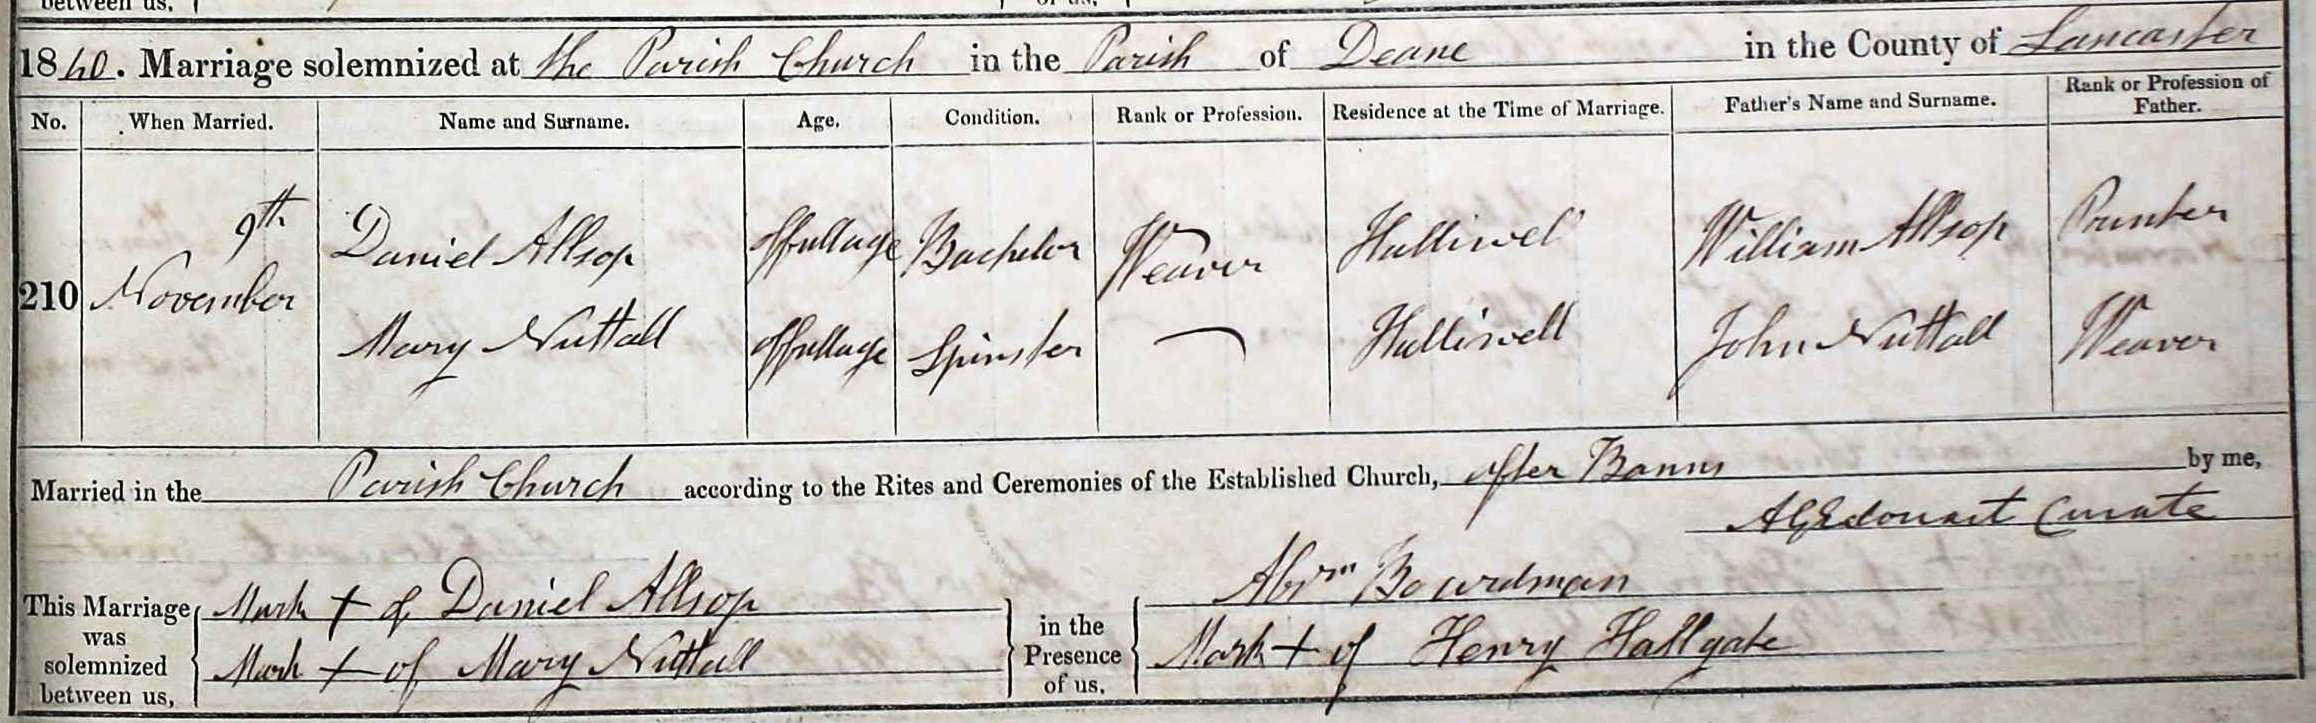 between us,
1840. Marriage solemnized at the Parish Church in the Parish of Deane in the County of Lancaster
No. When Married. Name and Surname. Age. Condition. Rank or Profession. Residence at the Time of Marriage. Father's Name and Surname. Rank or Profession of Father.
210 9th November
Daniel Allsop Offullage Bachelor Weaver Halliwell William Allsop Printer
Mary Nuttall Offullage Spinster — Halliwell John Nuttall Weaver
Married in the Parish Church according to the Rites and Ceremonies of the Established Church, after Banns by me,
Curate
This Marriage was solemnized between us,
Mark + of Daniel Allsop
Mark + of Mary Nuttall
in the Presence of us,
Abrm Boardman
Mark + of Henry Hallgate